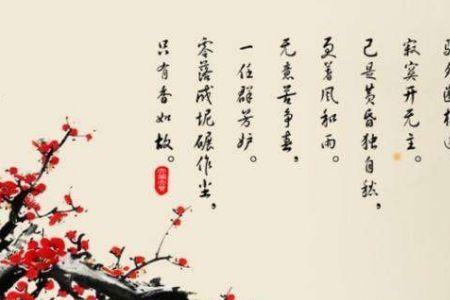 寂寞开无主。
已是黄昏独自愁，
更着风和雨。
无意苦争春，
一任群芳妒。
零落成坭碾作尘，
只有香如故。